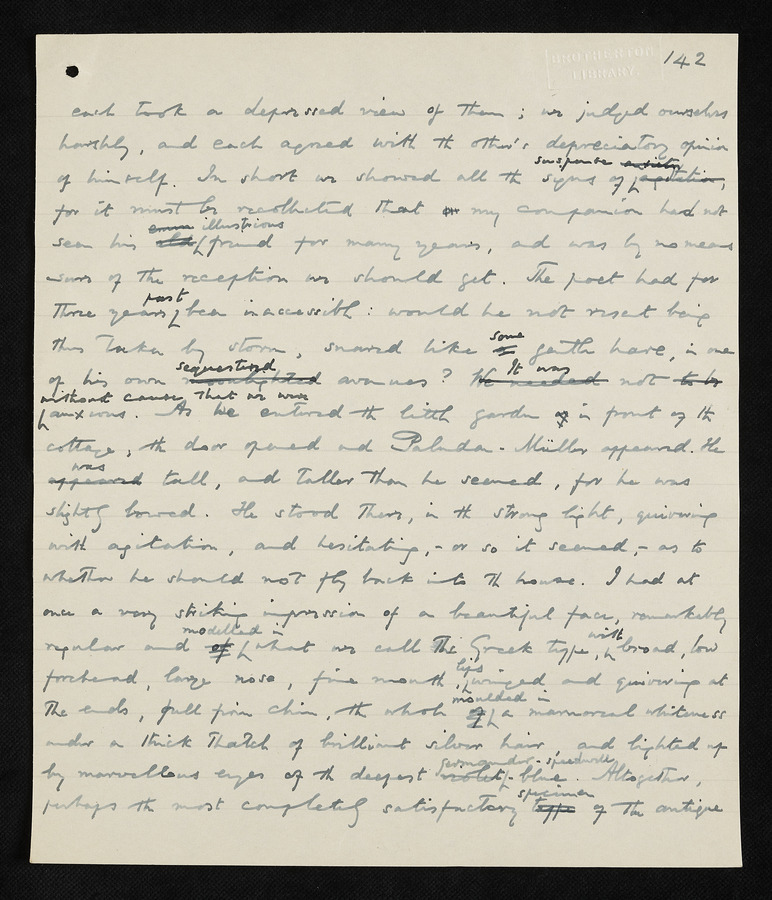 BROTHERTON
LIBRARY.
142
each took a depressed view of them ; we judged ourselves
harshly, and each agreed with the other's depreciatory opinion
suspense anxiety
of himself. In short we showed all the signs of agitation,
for it must be recollected that my companion had not
illustrious
seen his old friend for many years, and was by no means
sure of the reception we should get. The poet had for
past
three years been inaccessible : would he not resent being
some
thus taken by storm, snared like a gentle hare, in one
sequestered It was
of his own moonlighted avenues ? We needed not to be
without cause that we were
anxious. As we entered the little garden in front of the
cottage, the door opened and Paludan-Müller appeared. He
was
appeared tall, and taller than he seemed, for he was
slightly bowed. He stood there, in the strong light, quivering
with agitation, and hesitating, - or so it seemed, - as to
whether he should not fly back into the house. I had at
once a very striking impression of a beautiful face, remarkably
modelled in with
regular and of what we call the Greek type, broad, low
lips
forehead, large nose, fine mouth, winged and quivering at
moulded in
the ends, full firm chin, the whole of a marmoreal whiteness
under a thick thatch of brilliant silver hair, and lighted up
germander-speedwell
by marvellous eyes of the deepest violet-blue. Altogether,
specimen
perhaps the most completely satisfactory type of the antique